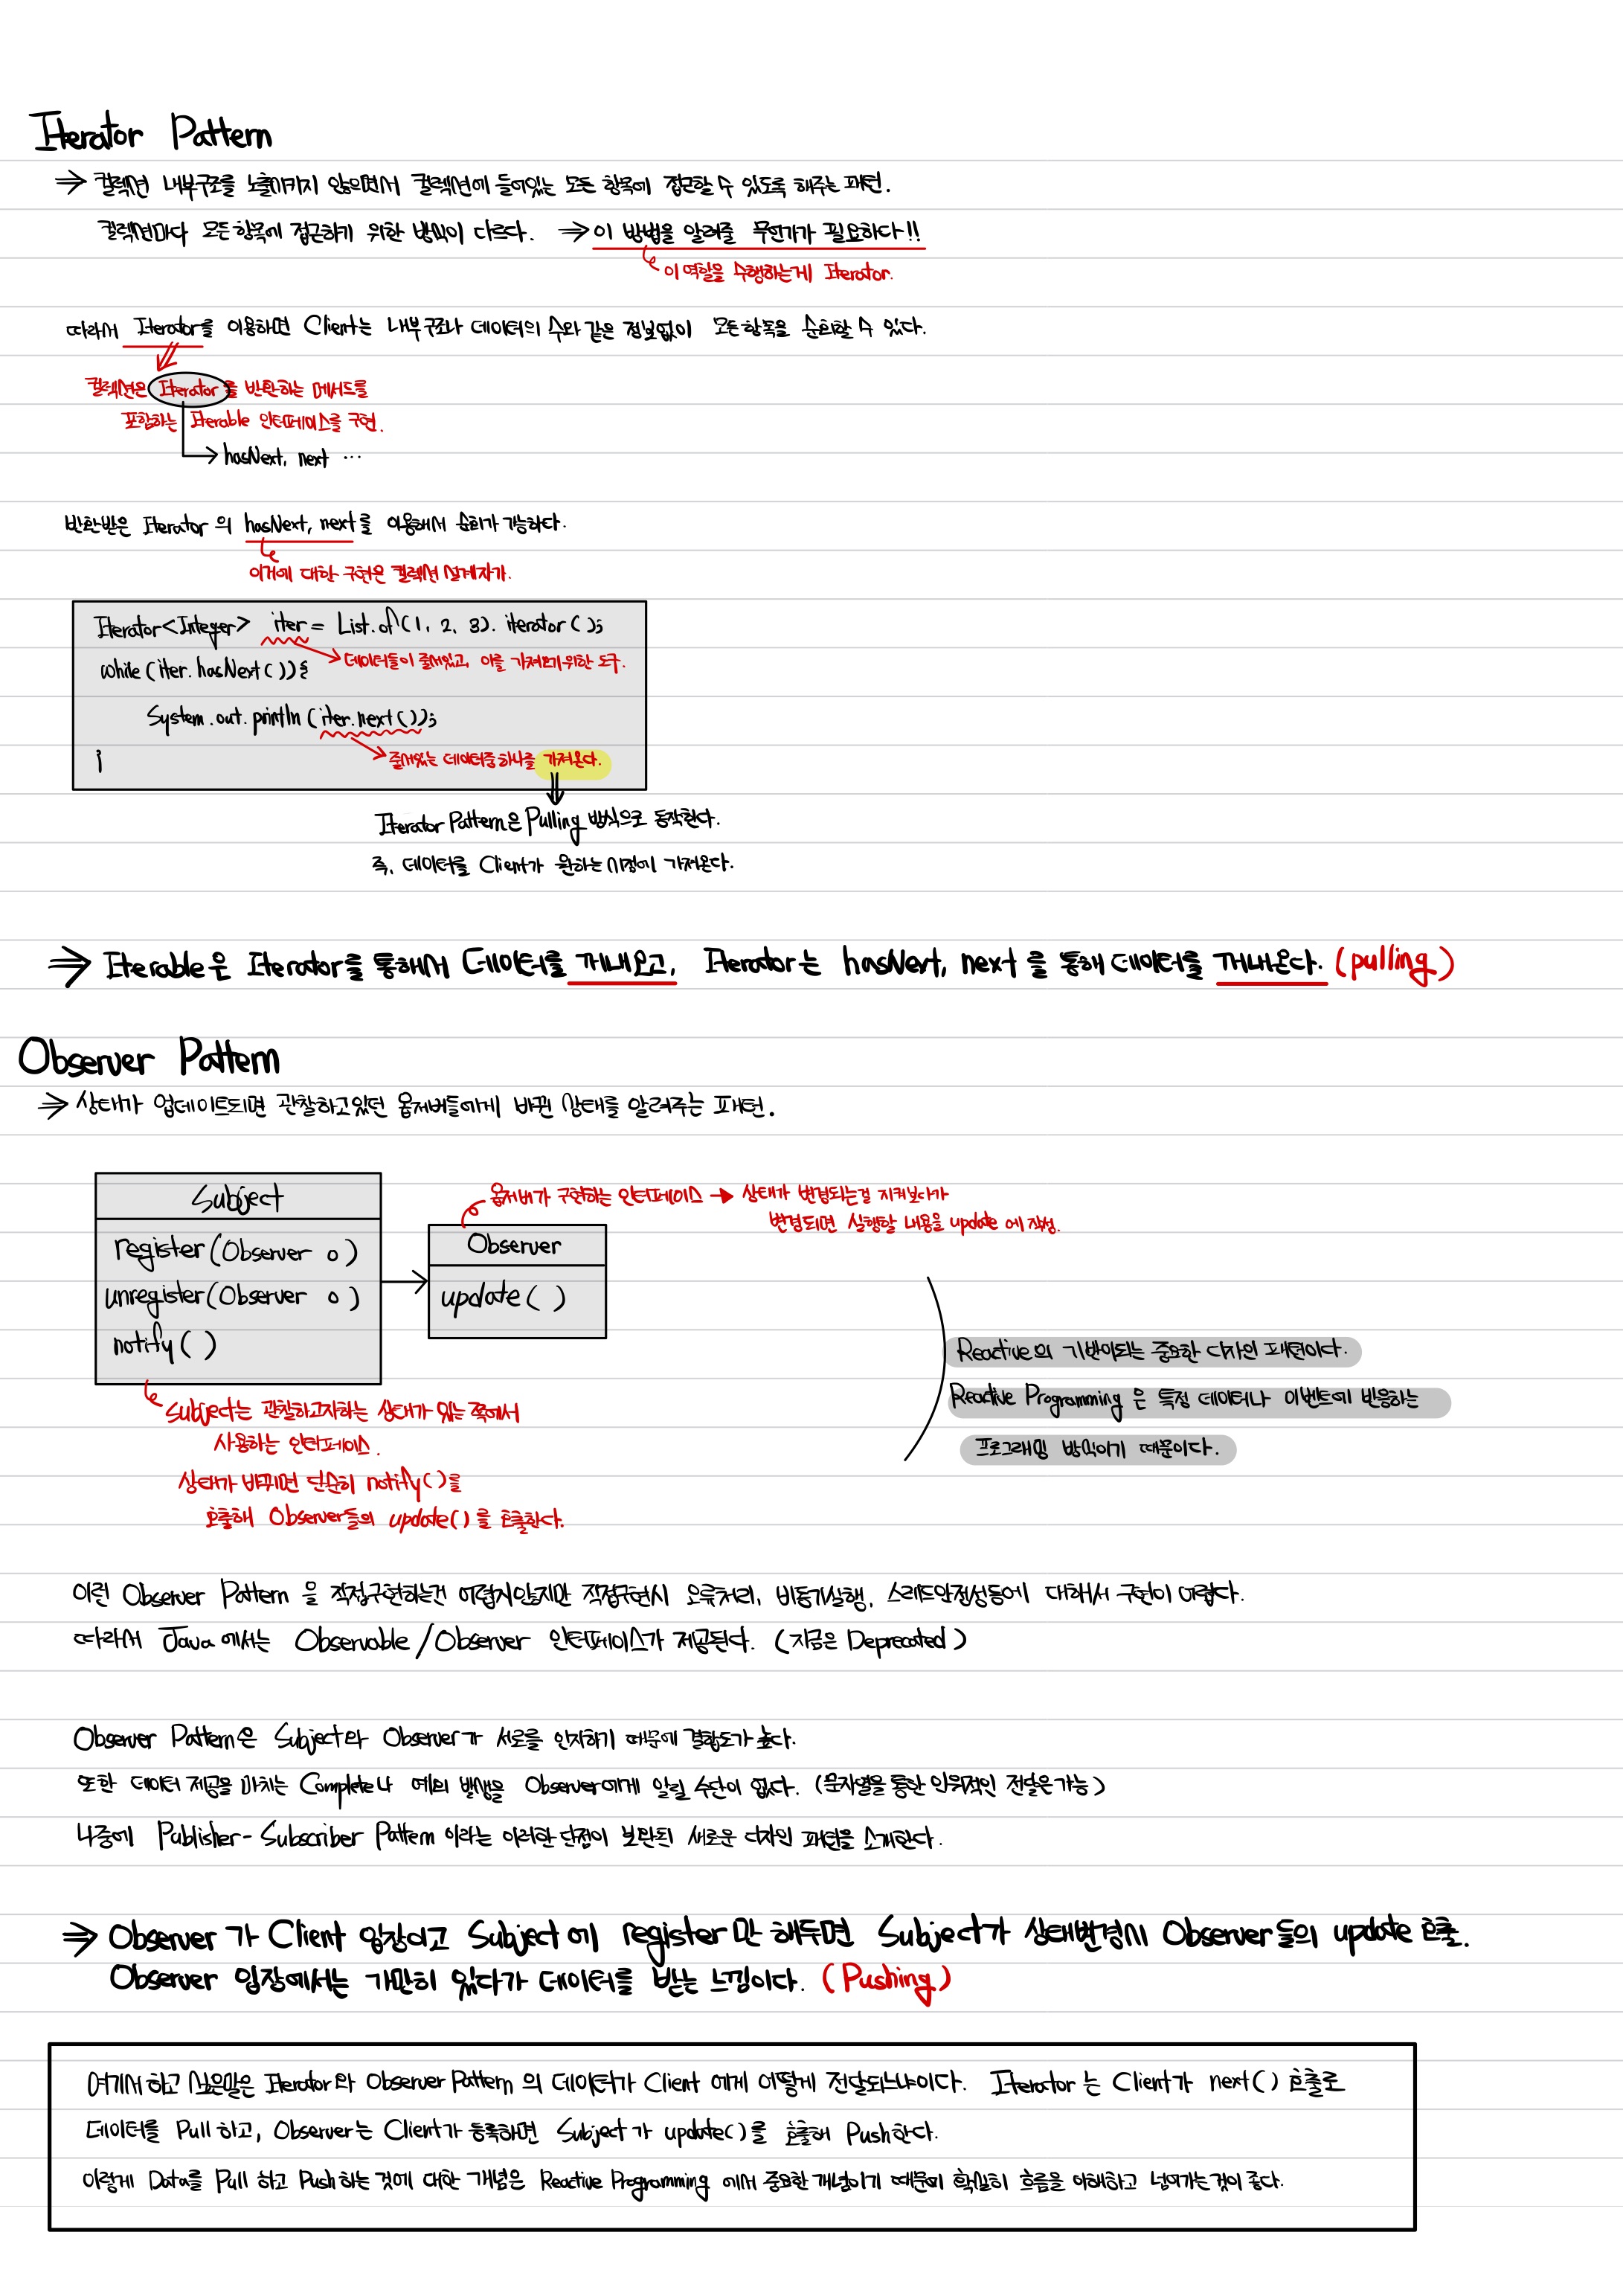 Iterator Pattern
⇒ 컬렉션 내부구조를 노출시키지 않으면서 컬렉션에 들어있는 모든 항목에 접근할 수 있도록 해주는 패턴.
컬렉션마다 모든 항목에 접근하기 위한 방식이 다르다. ⇒ 이 방법을 알려줄 무언가가 필요하다!!
이 역할을 수행하는게 Iterator.
따라서 Iterator를 이용하면 Client는 내부구조나 데이터의 수와 같은 정보없이 모든항목을 순회할 수 있다.
컬렉션은 Iterator를 반환하는 메서드를
포함하는 Iterable 인터페이스를 구현.
hasNext, next ...
반환받은 Iterator의 hasNext, next를 이용해서 순회가 가능하다.
이거에 대한 구현은 컬렉션 설계자가.
Iterator<Integer> iter = List.of(1, 2, 3). iterator();
데이터들이 줄서있고, 이를 가져오기위한 도구.
while(iter.hasNext()){
System.out.println(iter.next());
줄서있는 데이터중 하나를 가져온다.
}
Iterator Pattern은 Pulling 방식으로 동작한다.
즉, 데이터를 Client가 원하는 시점에 가져온다.
⇒ Iterable은 Iterator를 통해서 데이터를 꺼내오고, Iterator는 hasNext, next를 통해 데이터를 꺼내온다. (pulling)
Observer Pattern
⇒ 상태가 업데이트되면 관찰하고있던 옵저버들에게 바뀐 상태를 알려주는 패턴.
Subject
register(Observer o)
unregister(Observer o)
notify()
옵저버가 구현하는 인터페이스 → 상태가 변경되는걸 지켜보다가
변경되면 실행할 내용을 update에 작성.
Observer
update()
Reactive의 기반이되는 중요한 디자인 패턴이다.
Reactive Programming은 특정 데이터나 이벤트에 반응하는
프로그래밍 방식이기 때문이다.
Subject는 관찰하고자하는 상태가 있는 쪽에서
사용하는 인터페이스.
상태가 바뀌면 단순히 notify()를
호출해 Observer들의 update()를 호출한다.
이런 Observer Pattern을 직접구현하는건 어렵지않지만 직접구현시 오류처리, 비동기실행, 스레드안전성등에 대해서 구현이 어렵다.
따라서 Java에서는 Observable/Observer 인터페이스가 제공된다. (지금은 Deprecated)
Observer Pattern은 Subject와 Observer가 서로를 인지하기 때문에 결합도가 높다.
또한 데이터 제공을 마치는 Complete나 예외 발생을 Observer에게 알릴 수단이 없다. (문자열을 통한 임의적인 전달은 가능)
나중에 Publisher-Subscriber Pattern이라는 이러한 단점이 보완된 새로운 디자인 패턴을 소개한다.
⇒ Observer가 Client 입장이고 Subject에 register만 해두면 Subject가 상태변경시 Observer들의 update 호출.
Observer 입장에서는 가만히 있다가 데이터를 받는 느낌이다. (Pushing)
여기서 하고 싶은말은 Iterator와 Observer Pattern의 데이터가 Client에게 어떻게 전달되느냐이다. Iterator는 Client가 next() 호출로
데이터를 Pull 하고, Observer는 Client가 등록하면 Subject가 update()를 호출해 Push한다.
이렇게 Data를 Pull 하고 Push하는 것에 대한 개념은 Reactive Programming에서 중요한 개념이기 때문에 확실히 흐름을 이해하고 넘어가는것이 좋다.